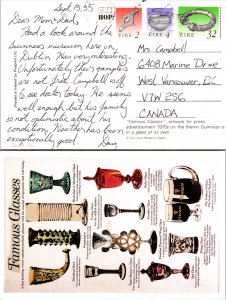 Sept 19, '95
Dear Mom & Dad,
Had a look around the
Guinness museum here in
Dublin. Was very interesting.
Unfortunately their samples
are not free. Campbell off
to see doctor today. He seems
well enough, but his family
is not optimistic about his
condition. Weather has been
exceptionally good.
Doug
HOP!
ÉIRE 2
ÉIRE
ÉIRE 32
Mrs Campbell
6408 Marine Drive,
West Vancouver, BC
V7W 2S6
CANADA
"Famous Glasses" artwork for press
advertisement 1970s on the theme Guinness
in a glass of its own
Famous Glasses